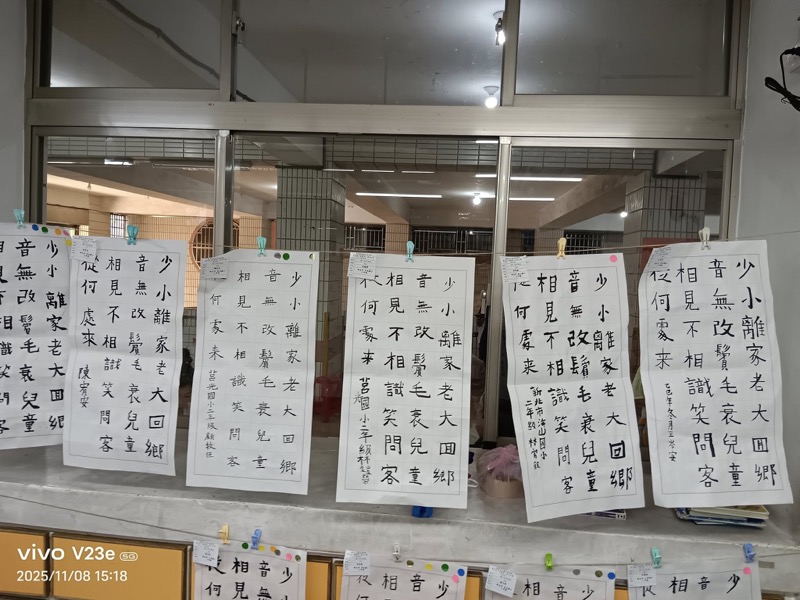 少小離家老大回鄉
音無改鬢毛衰兒童
相識笑問
少小離家老大回鄉
音無改鬢毛衰兒童
相見不相識笑問客
從何處來
少小離家老大回鄉
音無改鬢毛衰兒童
相見不相識笑問客
何處來 莒光國小二年級
少小離家老大回鄉
音無改鬢毛衰兒童
相見不相識笑問客
從何處來 莒光國小三年級林
少小離家老大回鄉
音無改鬢毛衰兒童
相見不相識笑問客
從何處來 新北市海山國小
二年級
少小離家老大回鄉
音無改鬢毛衰兒童
相見不相識笑問客
從何處來
少
音無
相見
從何
少
音
相
從何
少
音
相
少
音
相
從
vivo V23e 5G
2025/11/08 15:18